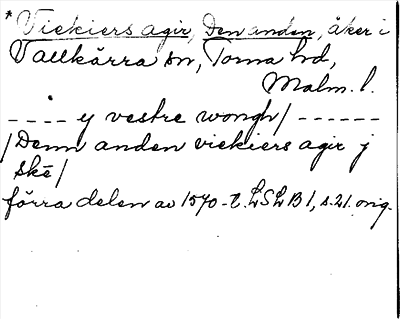 * Vickiers agir, Den anden, åker i
Vallkärra sn, Torna hd,
Malm. l.
---- y vestre wongh/ ------
/Denn anden vickiers agir j
skē/
förra delen av 1570-t. LSLB 1, s. 21. orig.